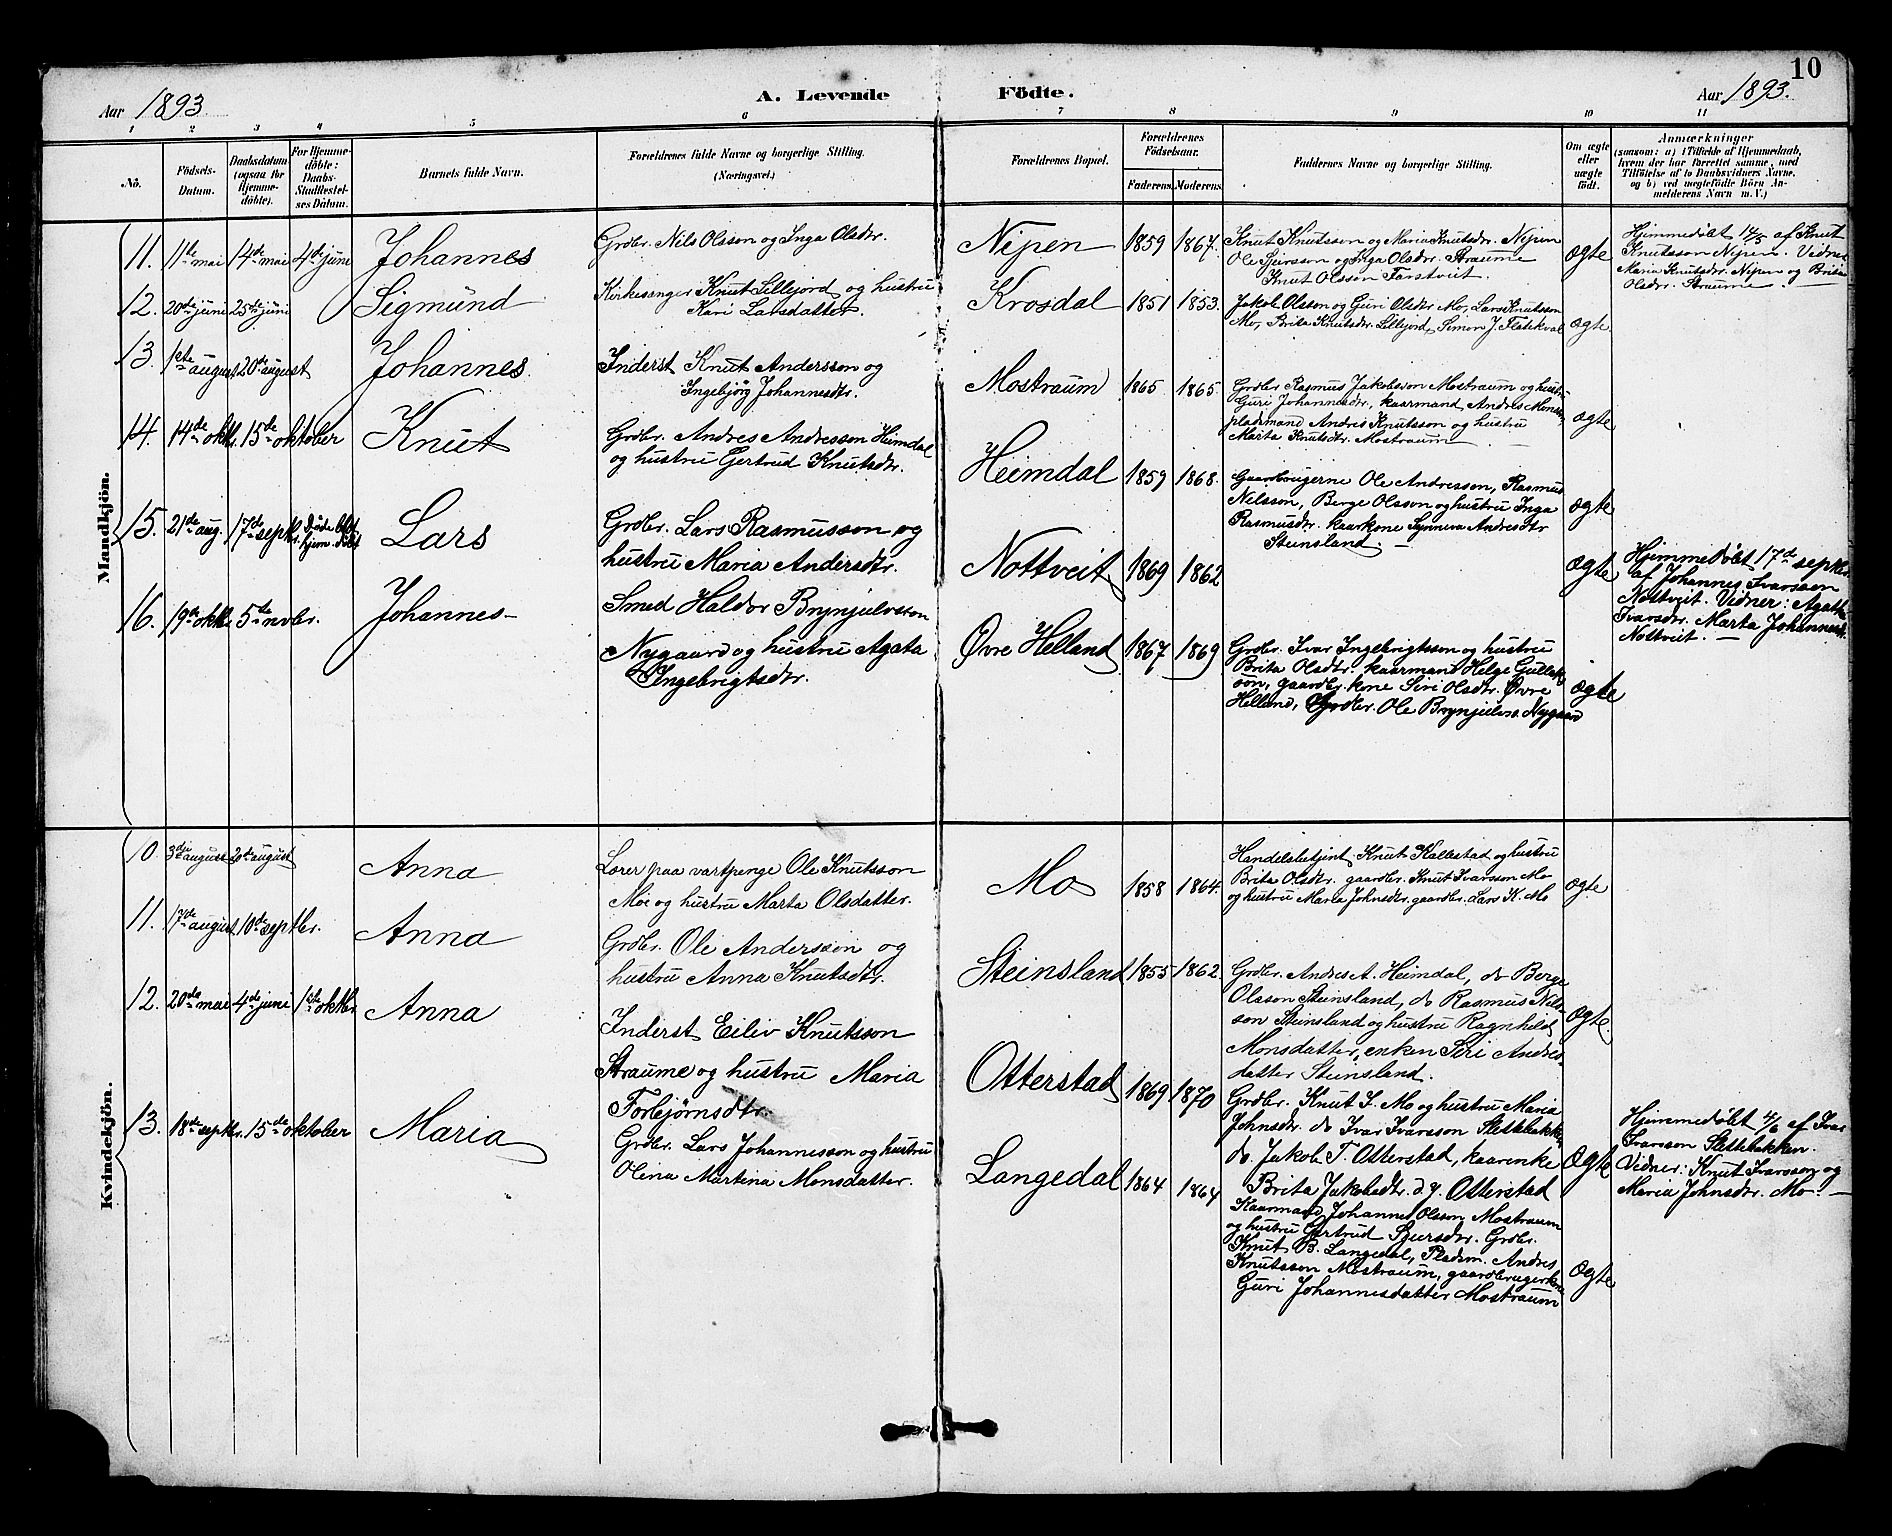 10
Aar 1893.
A. Levende Födte.
Aar 1893.
1 2 3 4 5 6 7 8 9 10 11
No.
Födsels-
Datum.
Daabsdatum
(ogsaa for
Hjemme-
döbte).
For Hjemme-
döbte:
Daabs-
Stadfestel-
ses Datum.
Barnets fulde Navn.
Forældrenes fulde Navne og borgerlige Stilling.
(Næringsvei.)
Forældrenes Bopæl.
Forældrenes
Födselsaar.
Faderens. Moderens.
Faddernes Navne og borgerlige Stilling.
Om ægte
eller
uægte
födt.
Anmærkninger
(saasom: a) i Tilfælde af Hjemmedaab,
hvem der har forrettet samme, med
Tilföielse af to Daabsvidners Navne,
og b) ved uægtefödte Börn An-
melderens Navn m. V.)
Mandkjön.
11. 11te mai 14de mai 4de juni Johannes
Grdbr. Nils Olsson og Inga Olsdtr.
Nipen 1859 1867.
Knut Knutsson og Maria Knutsdtr. Nipen
Ole Sjursson og Inga Olsdtr. Straume
Knut Olsson Farstveit.
ægte
Hjemmedøbt 14/5 af Knut
Knutsson Nipen. Vidner
Maria Knutsdtr. Nipen og Brita
Olsdtr. Straume
12. 20de juni 25de juni Sigmund
Kirkesanger Knut Lillejord og hustru
Kari Larsdatter.
Krosdal 1851 1853.
Jakob Olsson og Guri Olsdtr Mo, Lars Knutsson
Mo, Brita Knutsdtr. Lillejord, Simon J. Flatekval
ægte
13. 1ste august 20de august Johannes.
Inderst Knut Andersson og
Ingebjørg Johannesdtr.
Mostraum 1865 1865.
Grdbr Rasmus Jakobsson Mostraum og hustru
Guri Johannesdtr, kaarmand Andres Monss.
pladsmand Andres Knutsson og hustru
Marta Knutsdtr. Mostraum
ægte
14. 14de oktbr. 15de oktober Knut
Grdbr. Andres Andresson Heimdal
og hustru Gertrud Knutsdtr.
Heimdal 1859 1868.
Gaardbrugerne Ole Andresson, Rasmus
Nilsson, Berge Olsson og hustru Inga
Rasmusdtr. kaarkone Synneva Andresdtr
Steinsland.
ægte
15. 21de aug. 17de septbr. Døde blot
hjem. døbt Lars
Grdbr. Lars Rasmusson og
hustru Maria Andersdtr.
Nottveit 1869 1862
ægte
Hjemmedøbt 17de septbr.
af Johannes Ivarsson
Nottveit. Vidner: Agatha
Ivarsdr. Marta Johannesd.
Nottveit.
16. 19de oktbr. 5te novbr. Johannes
Smed Haldor Brynjulvsson
Nygaard og hustru Agata
Ingebrigtsdtr.
Øvre Helland 1867 1869
Grdbr. Ivar Ingebrigtsson og hustru
Brita Olsdtr. kaarmand Helge Gullak-
son, gaardbr. kone Siri Olsdtr. Øvre
Helland, Grdbr. Ole Brynjulvs. Nygaard
ægte
Kvindekjön.
10. 3die august 20de august Anna
Lærer paa vartpenge Ole Knutsson
Moe og hustru Marta Olsdatter.
Mo 1858 1864.
Handelsbetjent Knut Kallestad og hustru
Brita Olsdtr. gaardbr. Knut Ivarsson Mo
og hustru Maria Johnsdtr. gaardbr. Lars K. Mo
ægte
11. 17de august 10de septbr. Anna
Grdbr. Ole Andersson og
hustru Anna Knutsdtr.
Steinsland 1855 1862
Grdbr. Andres A. Heimdal, do Berge
Olsson Steinsland, do Rasmus Nils-
son Steinsland og hustru Ragnhild
Monsdatter, enken Siri Andres-
datter Steinsland.
ægte.
12. 20de mai 4de juni 1ste oktbr. Anna
Inderst Eiliv Knutsson
Straume og hustru Maria
Torbjørnsdtr.
Otterstad 1869 1870
Grdbr. Knut I. Mo og hustru Maria
Johnsdtr. do Ivar Ivarsson Slettebakken
do. Jakob T. Otterstad, kaarenke
Brita Jakobsdtr. d.y. Otterstad
ægte
Hjemmedøbt 4/6 af Ivar
Ivarsson Slettebakken.
Vidner: Knut Ivarsson og
Maria Johnsdtr. Mo.
13. 18de septbr. 15de oktober Maria
Grdbr. Lars Johannesson og hustru
Olina Martina Monsdatter.
Langedal 1864 1864
Kaarmand Johannes Olsson Mostraum
og hustru Gertrud Sjursdtr. Grdbr.
Knut B. Langedal, Pladsm. Andres
Knutsson Mostraum, gaardbrugerkone
Guri Johannesdatter Mostraum
ægte